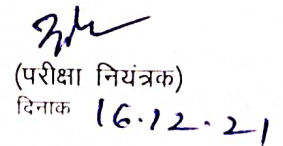 (परीक्षा नियंत्रक)
दिनाक 16.12.21